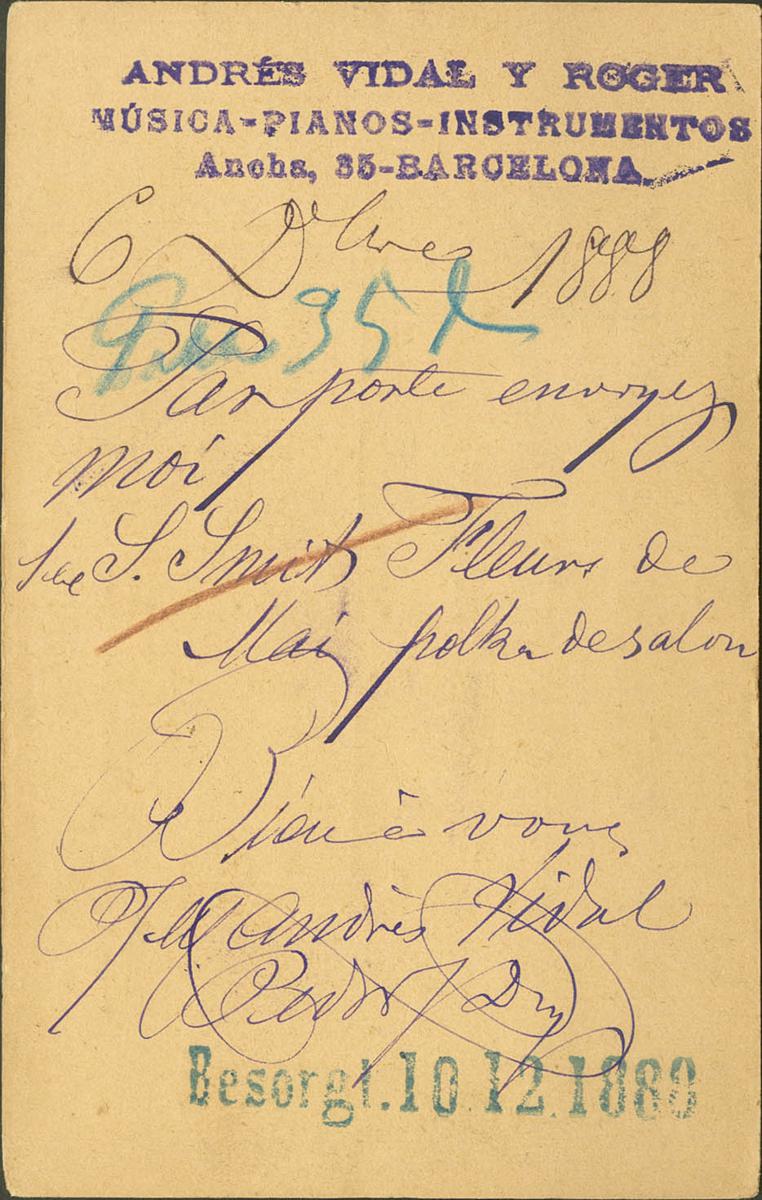 ANDRÉS VIDAL Y ROGER
MÚSICA-PIANOS-INSTRUMENTOS
Ancha, 35-BARCELONA
6 Dbre 1888
35
Par poste envoyez
moi
S. Smith Fleurs de
Mai polka de salon
Bien à vous
Andrès Vidal
Besorgt. 10 12 1888